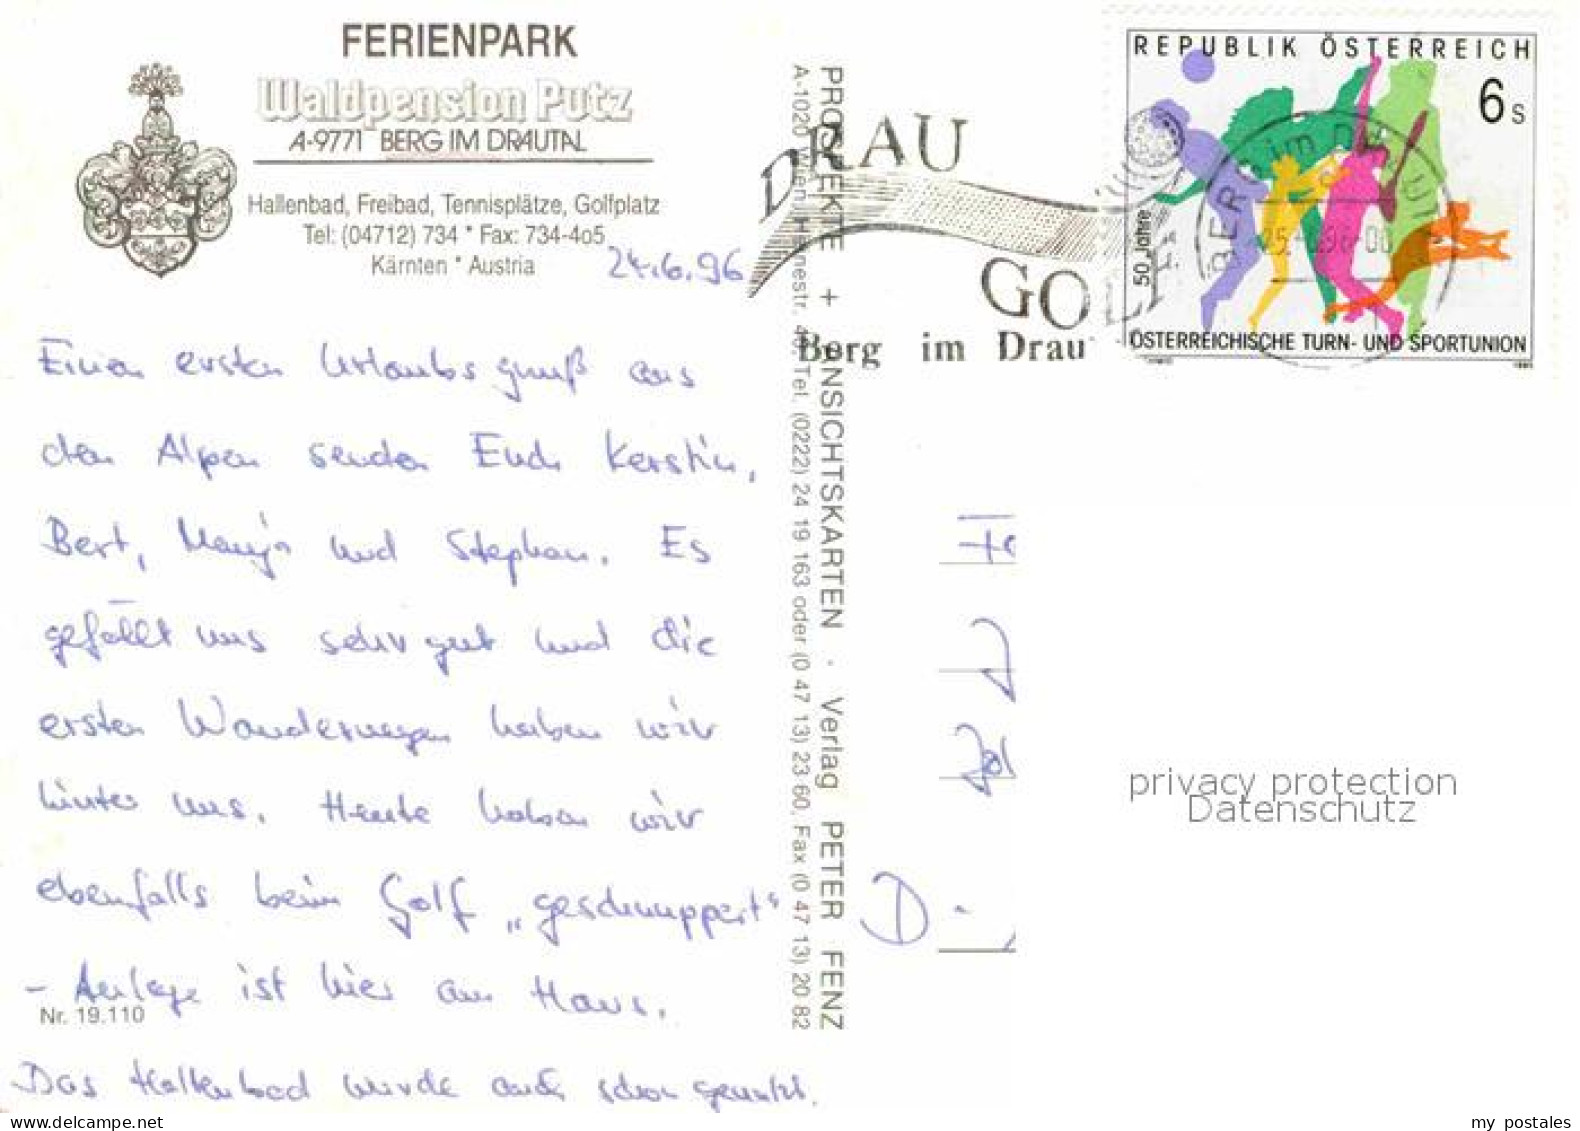 FERIENPARK
Waldpension Putz
A-9771 BERG IM DRAUTAL
Hallenbad, Freibad, Tennisplätze, Golfplatz
Tel: (04712) 734 * Fax: 734-405
Kärnten * Austria
24.6.96
Einen ersten Urlaubsgruß aus
den Alpen senden Euch Kerstin,
Bert, Manja und Stephan. Es
gefällt uns sehr gut und die
ersten Wanderungen haben wir
hinter uns. Heute haben wir
ebenfalls beim Golf „geschnuppert“
- Anlage ist hier am Haus.
Nr. 19.110
Das Hallenbad wurde auch schon genutzt.
PROSPEKTE + ANSICHTSKARTEN · Verlag PETER FENZ
A-1020 Wien, Tel. (0222) 24 19 163 oder (0 47 13) 23 60, Fax (0 47 13) 20 82
DRAU
GOLF
Berg im Drau
REPUBLIK ÖSTERREICH
6 S
50 Jahre
ÖSTERREICHISCHE TURN- UND SPORTUNION
D
privacy protection
Datenschutz
my postales